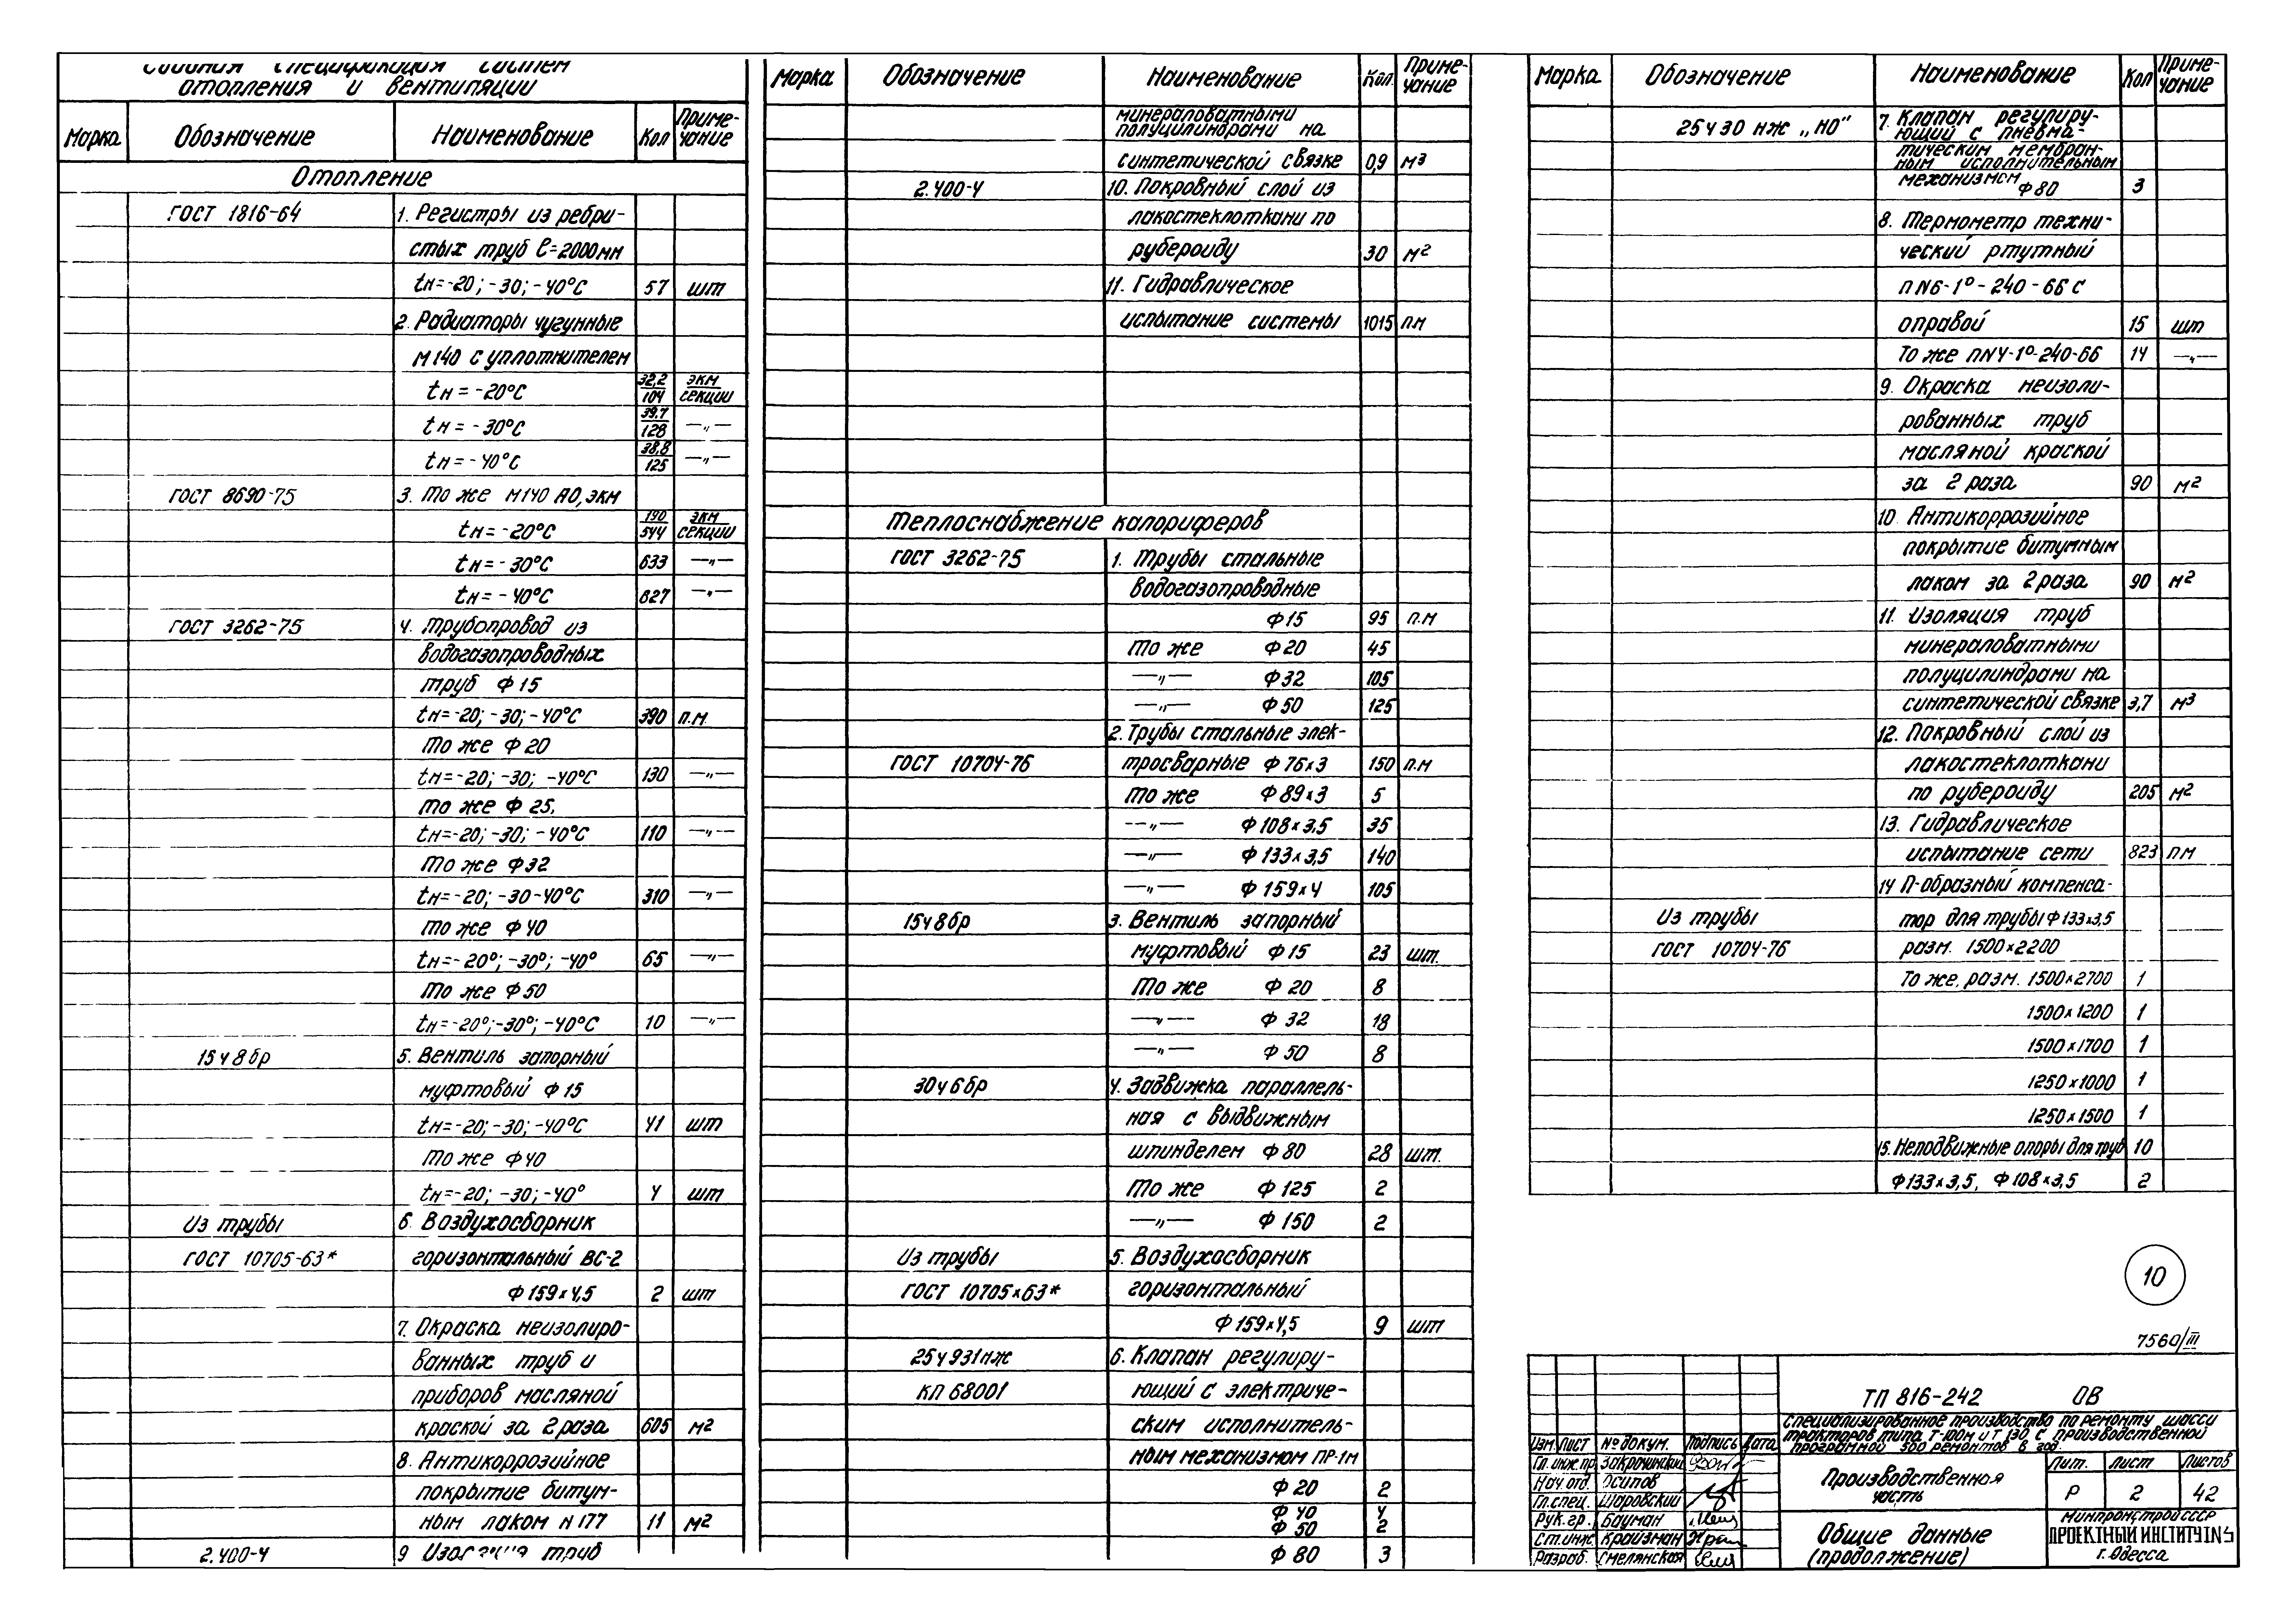 Сводная спецификация систем
отопления и вентиляции
Марка Обозначение Наименование Кол Приме-чание
Отопление
ГОСТ 1816-64 1. Регистры из ребри-
стых труб ℓ=2000мм
tн=-20; -30; -40°С 57 шт
2. Радиаторы чугунные
М140 с уплотнителем
tн = -20°С 32,2/104 экм/секции
tн = -30°С 39,7/128 —„—
tн = -40°С 38,8/125 —„—
ГОСТ 8690-75 3. То же М140 АО, экм
tн = -20°С 190/544 экм/секции
tн = -30°С 633 —„—
tн = -40°С 627 —„—
ГОСТ 3262-75 4. Трубопровод из
водогазопроводных
труб Ф 15
tн=-20; -30; -40°С 390 п.м.
То же Ф 20
tн=-20; -30; -40°С 130 —„—
То же Ф 25,
tн=-20; -30; -40°С 110 —„—
То же Ф32
tн=-20; -30-40°С 310 —„—
То же Ф 40
tн=-20°; -30°; -40° 65 —„—
То же Ф 50
tн=-20°; -30°; -40°С 10 —„—
15ч8бр 5. Вентиль запорный
муфтовый Ф 15
tн=-20; -30; -40°С 41 шт
То же Ф 40
tн=-20; -30; -40° 4 шт
Из трубы 6. Воздухосборник
ГОСТ 10705-63* горизонтальный ВС-2
Ф 159х4,5 2 шт
7. Окраска неизолиро-
ванных труб и
приборов масляной
краской за 2 раза 605 м²
8. Антикоррозийное
покрытие битум-
ным лаком N 177 11 м²
2.400-4 9 Изоляция труб
Марка Обозначение Наименование Кол. Приме-чание
минераловатными
полуцилиндрами на
синтетической связке 0,9 м³
2.400-4 10. Покровный слой из
лакостеклоткани по
рубероиду 30 м²
11. Гидравлическое
испытание системы 1015 п.м
Теплоснабжение калориферов
ГОСТ 3262-75 1. Трубы стальные
водогазопроводные
Ф15 95 п.м
То же Ф20 45
—„— Ф32 105
—„— Ф50 125
2. Трубы стальные элек-
ГОСТ 10704-76 тросварные Ф 76х3 150 п.м
То же Ф 89х3 5
—„— Ф 108х3,5 35
—„— Ф 133х3,5 140
—„— Ф 159х4 105
15ч8бр 3. Вентиль запорный
муфтовый Ф 15 23 шт.
То же Ф 20 8
—„— Ф 32 18
—„— Ф 50 8
30ч6бр 4. Задвижка параллель-
ная с выдвижным
шпинделем Ф 80 28 шт.
То же Ф 125 2
—„— Ф 150 2
Из трубы 5. Воздухосборник
ГОСТ 10705х63* горизонтальный
Ф 159х4,5 9 шт
25ч931нж 6. Клапан регулиру-
КП 68001 ющий с электриче-
ским исполнитель-
ным механизмом ПР-1м
Ф 20 2
Ф 40 4
Ф 50 2
Ф 80 3
Марка Обозначение Наименование Кол Приме-чание
25ч30 нж „НО" 7. Клапан регулиру-
ющий с пневма-
тическим мембран-
ным исполнительным
механизмом Ф80 3
8. Термометр техни-
ческий ртутный
П N6-1°-240-66 с
оправой 15 шт
То же ПN4-1°-240-66 14 —„—
9. Окраска неизоли-
рованных труб
масляной краской
за 2 раза 90 м²
10. Антикоррозийное
покрытие битумным
лаком за 2 раза 90 м²
11. Изоляция труб
минераловатными
полуцилиндрами на
синтетической связке 3,7 м³
12. Покровный слой из
лакостеклоткани
по рубероиду 205 м²
13. Гидравлическое
испытание сети 823 п.м
14 П-образный компенса-
Из трубы тор для трубы Ф133х3,5
ГОСТ 10704-76 разм. 1500х2200
То же, разм. 1500х2700 1
1500х1200 1
1500х1700 1
1250х1000 1
1250х1500 1
15. Неподвижные опоры для труб 10
Ф133х3,5, Ф108х3,5 2
10
7560/III
ТП 816-242 ОВ
Специализированное производство по ремонту шасси
тракторов типа Т-100м и Т 130 с производственной
программой 500 ремонтов в год.
Изм. Лист № докум. Подпись Дата
Гл. инж. пр.
Нач. отд. Осипов
Гл. спец. Шаровский
Рук. гр. Бауман
Ст. инж. Крайзман
Разраб. Смелянская
Производственная
часть
Лит. Лист Листов
Р 2 42
Общие данные
(продолжение)
Минпромстрой СССР
ПРОЕКТНЫЙ ИНСТИТУТ №3
г. Одесса